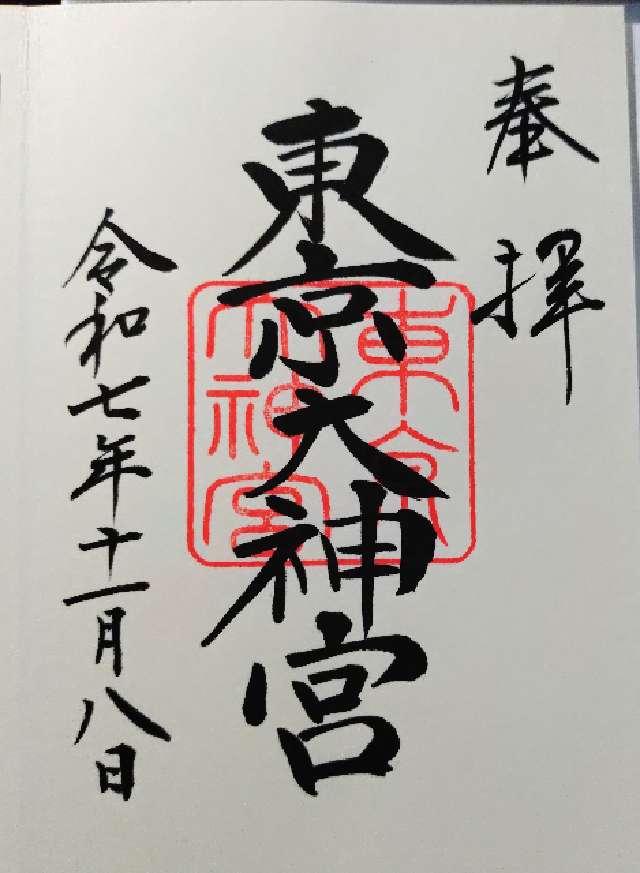 奉拝
東京大神宮
東京大神宮
令和七年十一月八日